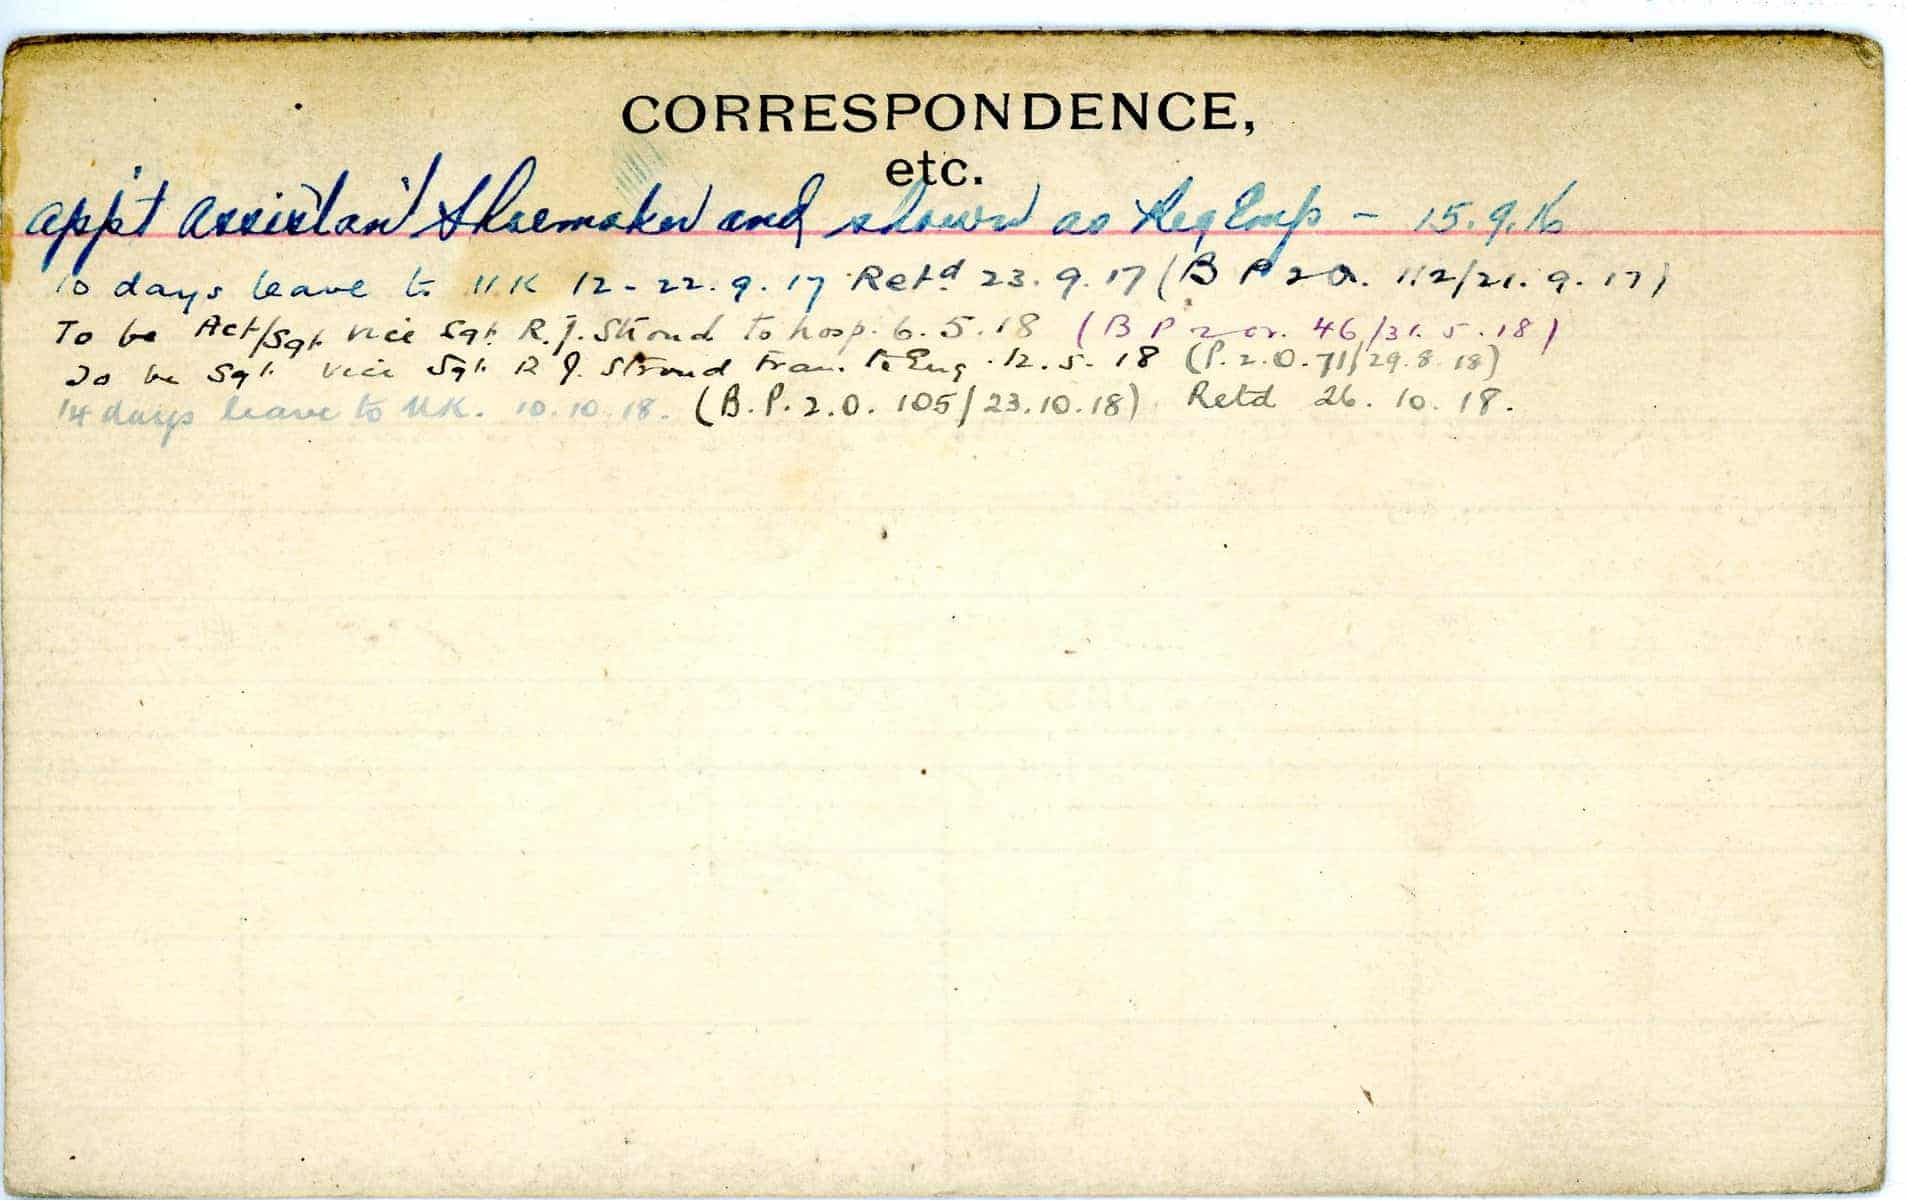 CORRESPONDENCE,
etc.
app't Assistant Shoemaker and shown as Reg Emp - 15.9.16
10 days leave to UK 12-22.9.17 Retd 23.9.17 (B P 2 O. 112/21.9.17)
To be Act/Sgt vice Sgt R.J. Stroud to hosp. 6.5.18 (B P 2 or. 46/31.5.18)
To be Sgt. vice Sgt. R J. Stroud tran. to Eng. 12.5.18 (P.2.O.71/29.8.18)
14 days leave to UK. 10.10.18. (B.P.2.O. 105/23.10.18) Retd 26.10.18.